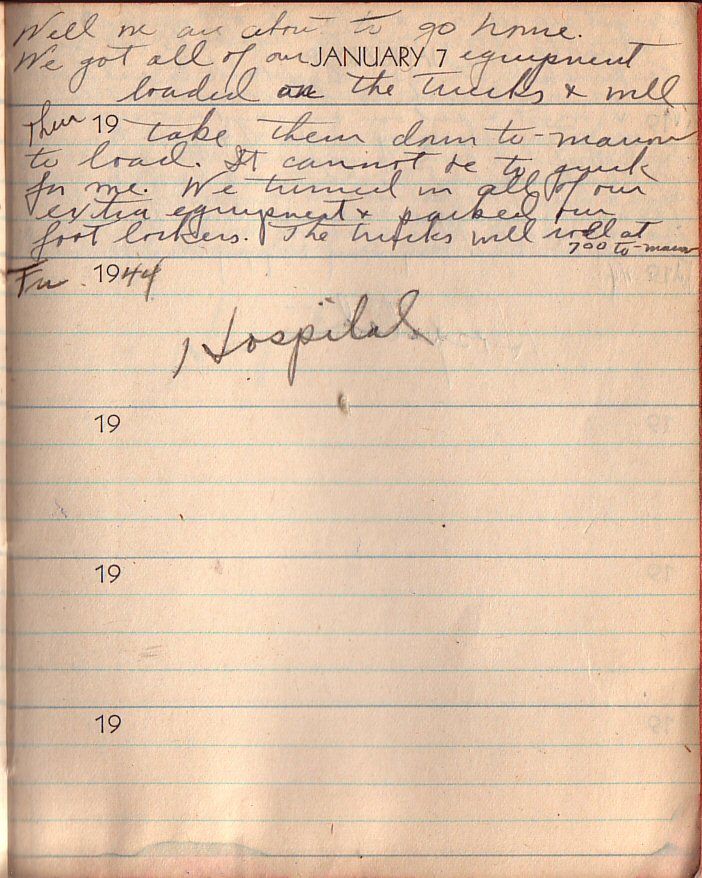 Well we are about to go home.
We got all of our JANUARY 7 equipment
loaded on the trucks & will
Thur 19 take them down to-morrow
to load. It cannot be to quick
for me. We turned in all of our
extra equipment & packed our
foot lockers. The trucks will roll at
700 to-morrow
Fri. 1944
Hospital
19
19
19